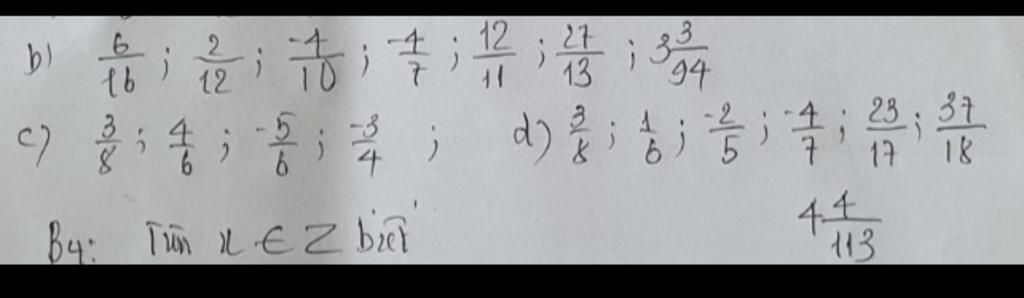 b) 6/16 ; 2/12 ; -4/10 ; -4/7 ; 12/11 ; 27/13 ; 3 3/94
c) 3/8 ; 4/6 ; -5/6 ; -3/4 ; d) 3/8 ; 1/6 ; -2/5 ; -4/7 ; 23/17 ; 37/18
4 4/113
B4: Tìm x ∈ Z biết